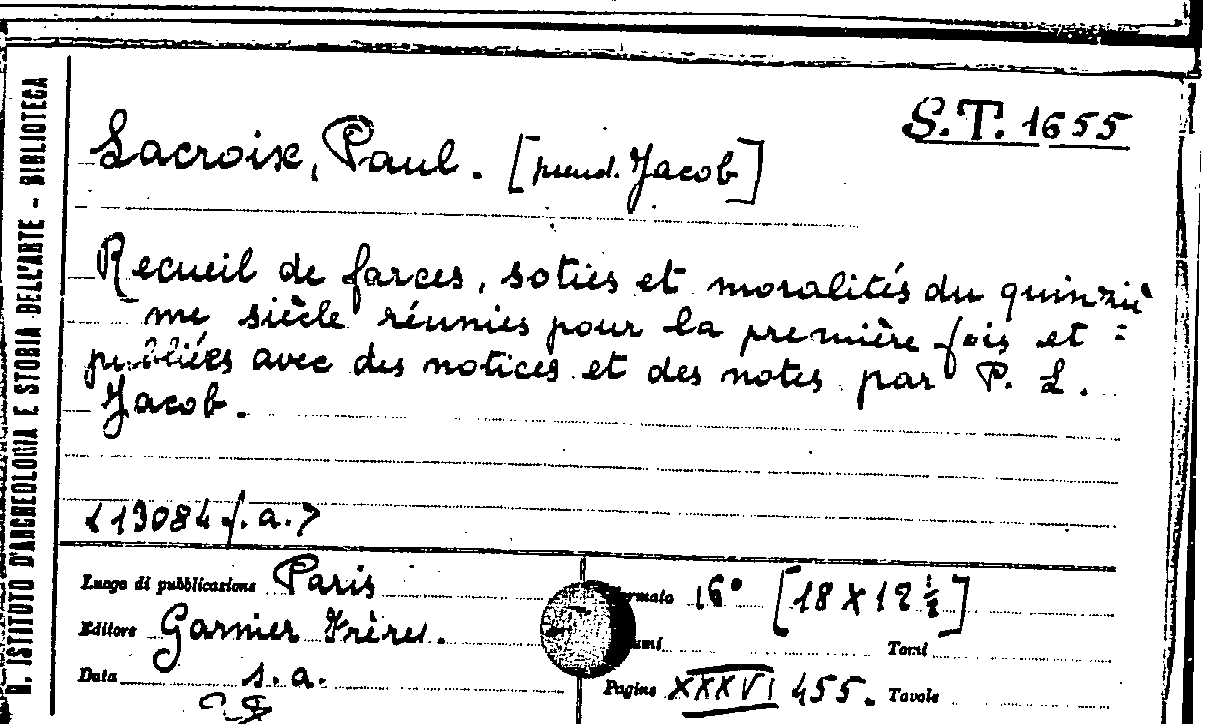 R. ISTITUTO D'ARCHEOLOGIA E STORIA DELL'ARTE - BIBLIOTECA
S.T. 1655
Lacroix, Paul. [pseud. Jacob]
Recueil de farces, soties et moralités du quinziè
me siècle réunies pour la première fois et =
publiées avec des notices et des notes par P. L.
Jacob.
<13084 f. a.>
Luogo di pubblicazione Paris
Formato 16° [18 X 12 ½]
Editore Garnier Frères.
Tomi
Data s. a.
Pagine XXXVI 455. Tavole